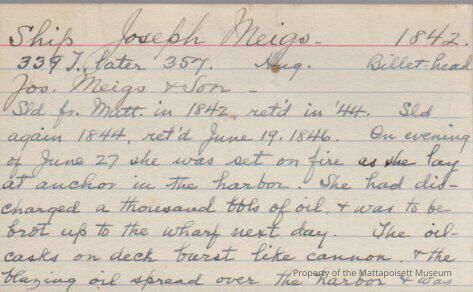 Ship Joseph Meigs - 1842.
339 T. later 357. Aug. Billet-head
Jos. Meigs & Son -
Sld fr. Matt. in 1842, ret'd in '44. Sld
again 1844, ret'd June 19. 1846. On evening
of June 27 she was set on fire as she lay
at anchor in the harbor. She had dis-
charged a thousand bbls of oil, & was to be
brot up to the wharf next day. The oil-
casks on deck burst like cannon, & the
blazing oil spread over the harbor & was
Property of the Mattapoisett Museum